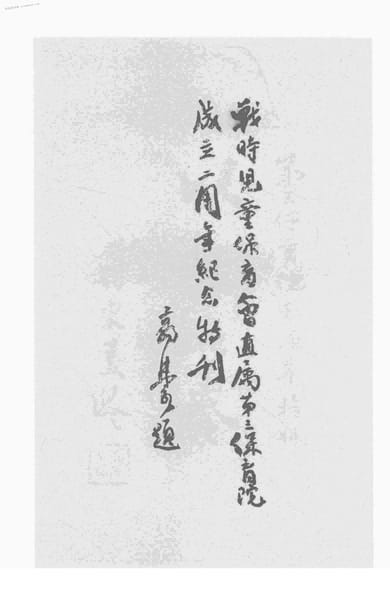 戰時兒童保育會直屬第三保育院
成立二周年紀念特刊
題